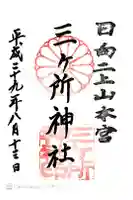 日向二上山本宮
三ヶ所神社
平成二十九年八月十三日